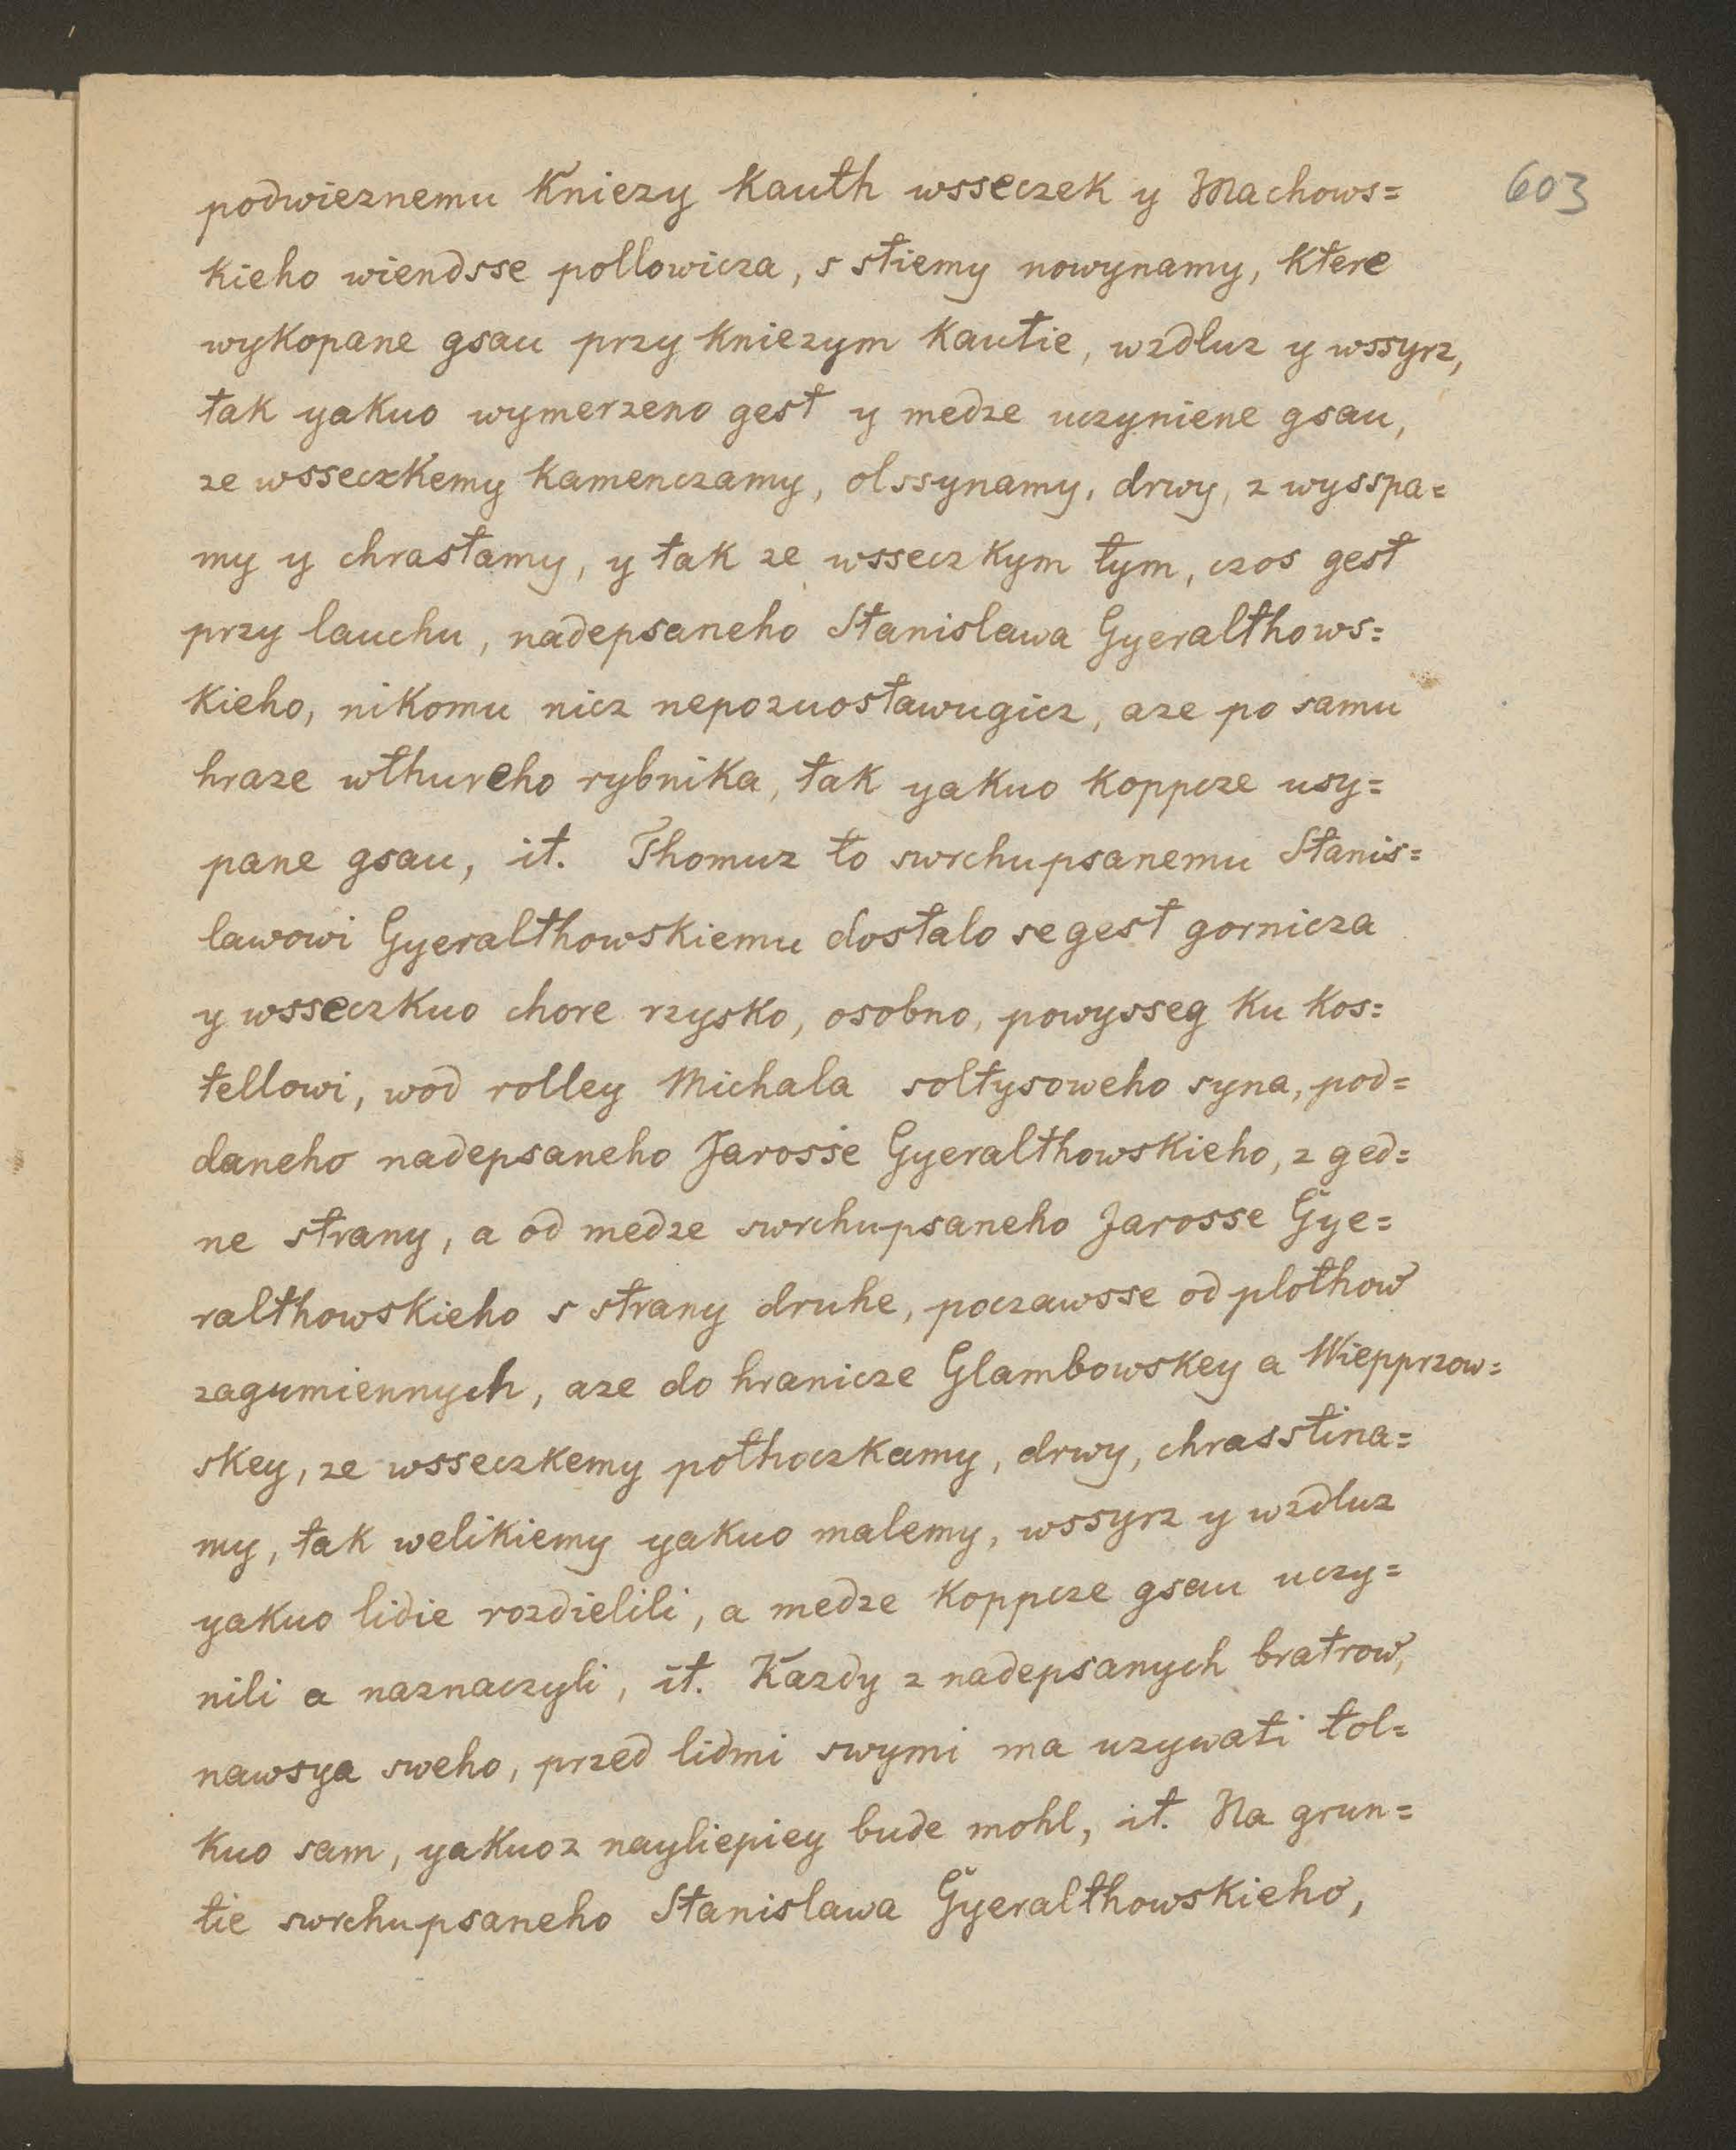 603
podwieznemu Kniezy Kauth wsseczek y Machows=
kieho wiendsse pollowicza, s stiemy nowynamy, ktere
wykopane gsau przy kniezym Kautie, wzdluz y wssyrz,
tak yakuo wymerzeno gest y medze uczyniene gsau,
ze wsseczkemy kamenczamy, olssynamy, drwy, z wysspa=
my y chrastamy, y tak ze wsseczkym tym, czos gest
przy lauchu, nadepsaneho Stanislawa Gyeralthows=
kieho, nikomu nicz nepozuostawugicz, aze po samu
hraze wthureho rybnika, tak yakuo koppcze usy=
pane gsau, it. Thomuz to swrchupsanemu Stanis=
lawowi Gyeralthowskiemu dostalo se gest gornicza
y wsseczkuo chore rzysko, osobno, powysseg ku kos=
tellowi, wod rolley Michala soltysoweho syna, pod=
daneho nadepsaneho Jarosse Gyeralthowskieho, z ged=
ne strany, a od medze swrchupsaneho Jarosse Gye=
ralthowskieho s strany druhe, poczawsse od plothow
zagumiennych, aze do hranicze Glambowskey a Wiepprzow=
skey, ze wsseczkemy pothoczkamy, drwy, chrasstina=
my, tak welikiemy yakuo malemy, wssyrz y wzdluz
yakuo lidie rozdielili, a medze koppcze gsau uczy=
nili a naznaczyli, it. Kazdy z nadepsanych bratrow,
nawsya sweho, przed lidmi swymi ma uzywati tol=
kuo sam, yakuoz nayliepiey bude mohl, it. Na grun=
tie swrchupsaneho Stanislawa Gyeralthowskieho,